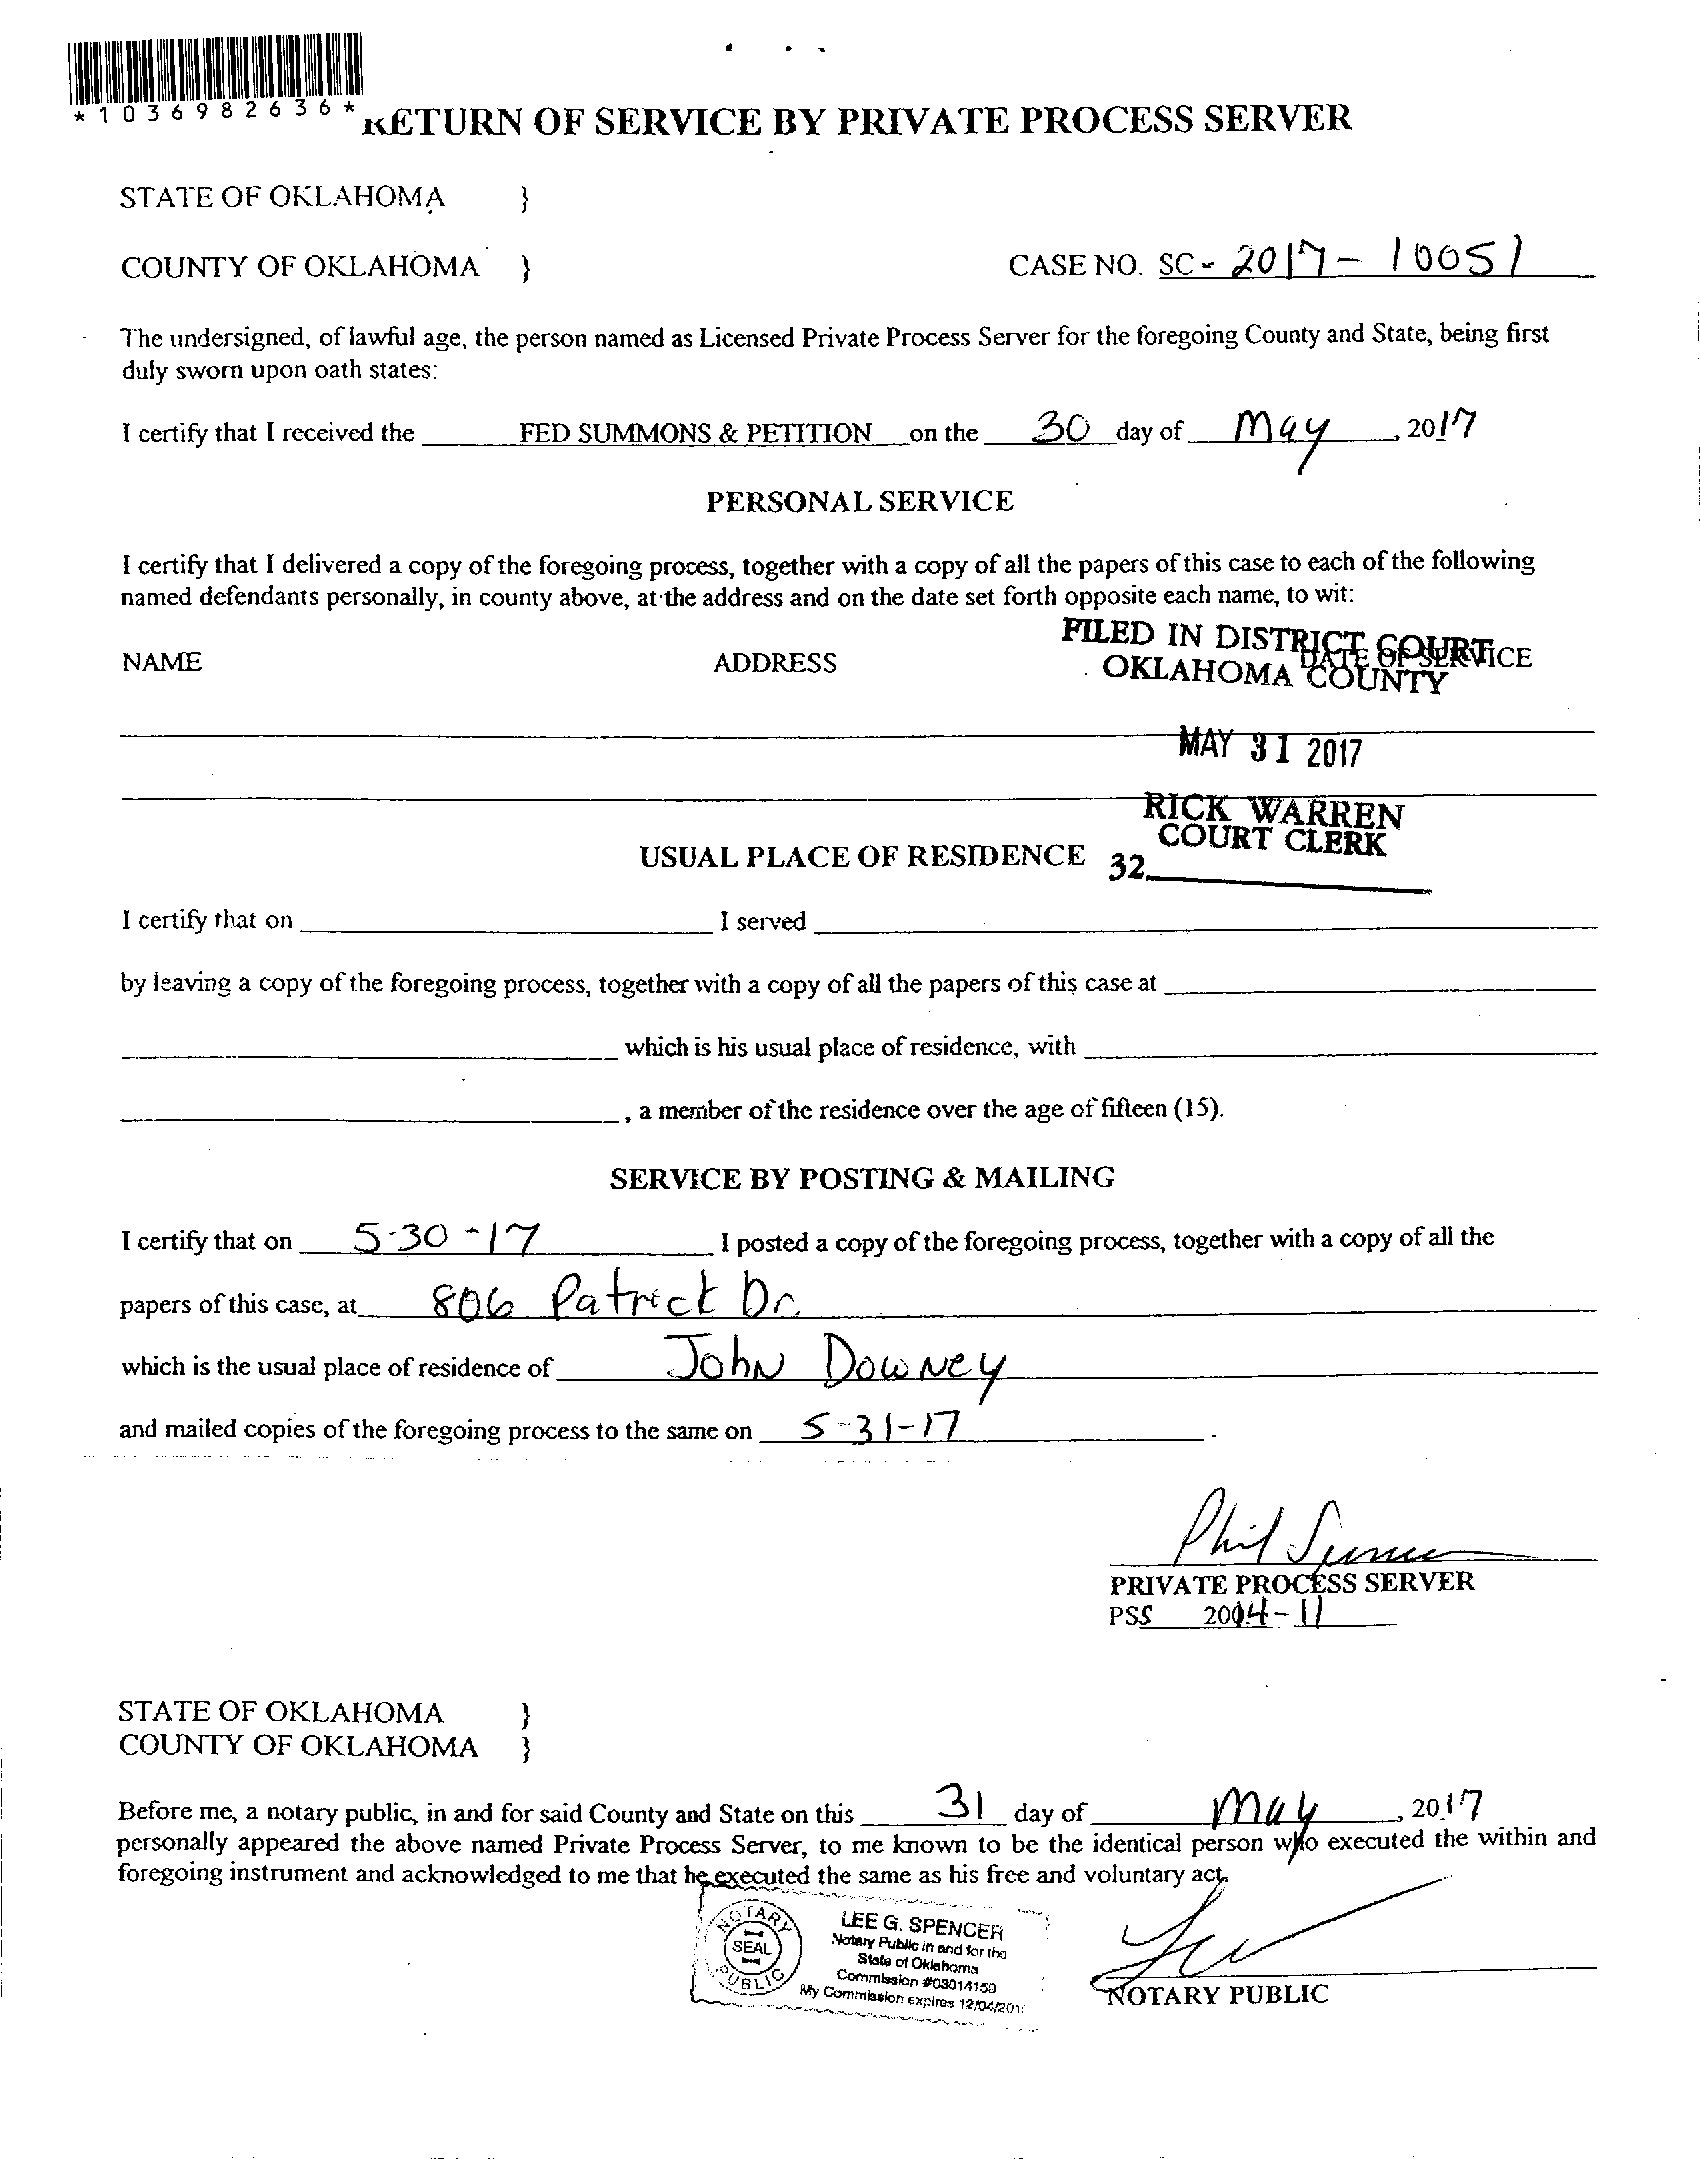 *1036982636*
RETURN OF SERVICE BY PRIVATE PROCESS SERVER
STATE OF OKLAHOMA }
COUNTY OF OKLAHOMA } CASE NO. SC - 2017 - 10051
The undersigned, of lawful age, the person named as Licensed Private Process Server for the foregoing County and State, being first
duly sworn upon oath states:
I certify that I received the FED SUMMONS & PETITION on the 30 day of May, 2017
PERSONAL SERVICE
I certify that I delivered a copy of the foregoing process, together with a copy of all the papers of this case to each of the following
named defendants personally, in county above, at the address and on the date set forth opposite each name, to wit:
FILED IN DISTRICT COURT
NAME ADDRESS DATE OF SERVICE
OKLAHOMA COUNTY
MAY 31 2017
RICK WARREN
COURT CLERK
USUAL PLACE OF RESIDENCE 32
I certify that on I served
by leaving a copy of the foregoing process, together with a copy of all the papers of this case at
which is his usual place of residence, with
, a member of the residence over the age of fifteen (15).
SERVICE BY POSTING & MAILING
I certify that on 5-30-17 I posted a copy of the foregoing process, together with a copy of all the
papers of this case, at 806 Patrick Dr.
which is the usual place of residence of John Downey
and mailed copies of the foregoing process to the same on 5-31-17.
Phil
PRIVATE PROCESS SERVER
PSS 2004-11
STATE OF OKLAHOMA }
COUNTY OF OKLAHOMA }
Before me, a notary public, in and for said County and State on this 31 day of May, 2017
personally appeared the above named Private Process Server, to me known to be the identical person who executed the within and
foregoing instrument and acknowledged to me that he executed the same as his free and voluntary act.
NOTARY
SEAL
PUBLIC
LEE G. SPENCER
Notary Public in and for the
State of Oklahoma
Commission #03014150
My Commission expires 12/04/201
NOTARY PUBLIC